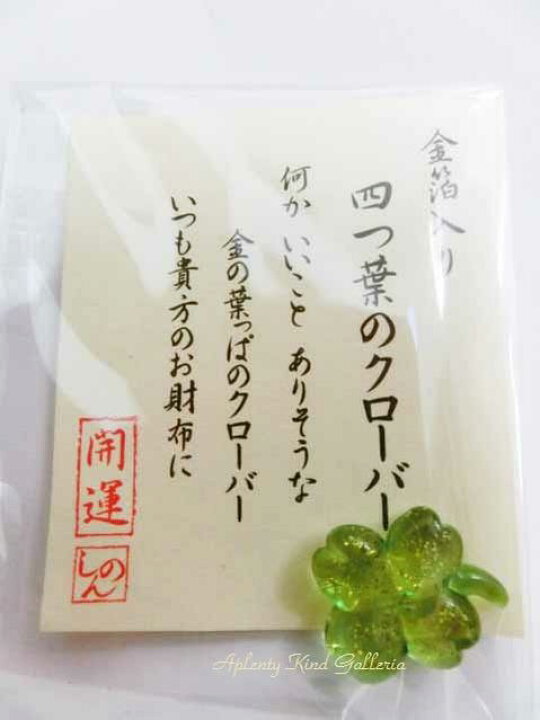 金箔入り
四つ葉のクローバー
何か いいこと ありそうな
金の葉っぱのクローバー
いつも貴方のお財布に
開運
しのん
Aplenty Kind Galleria